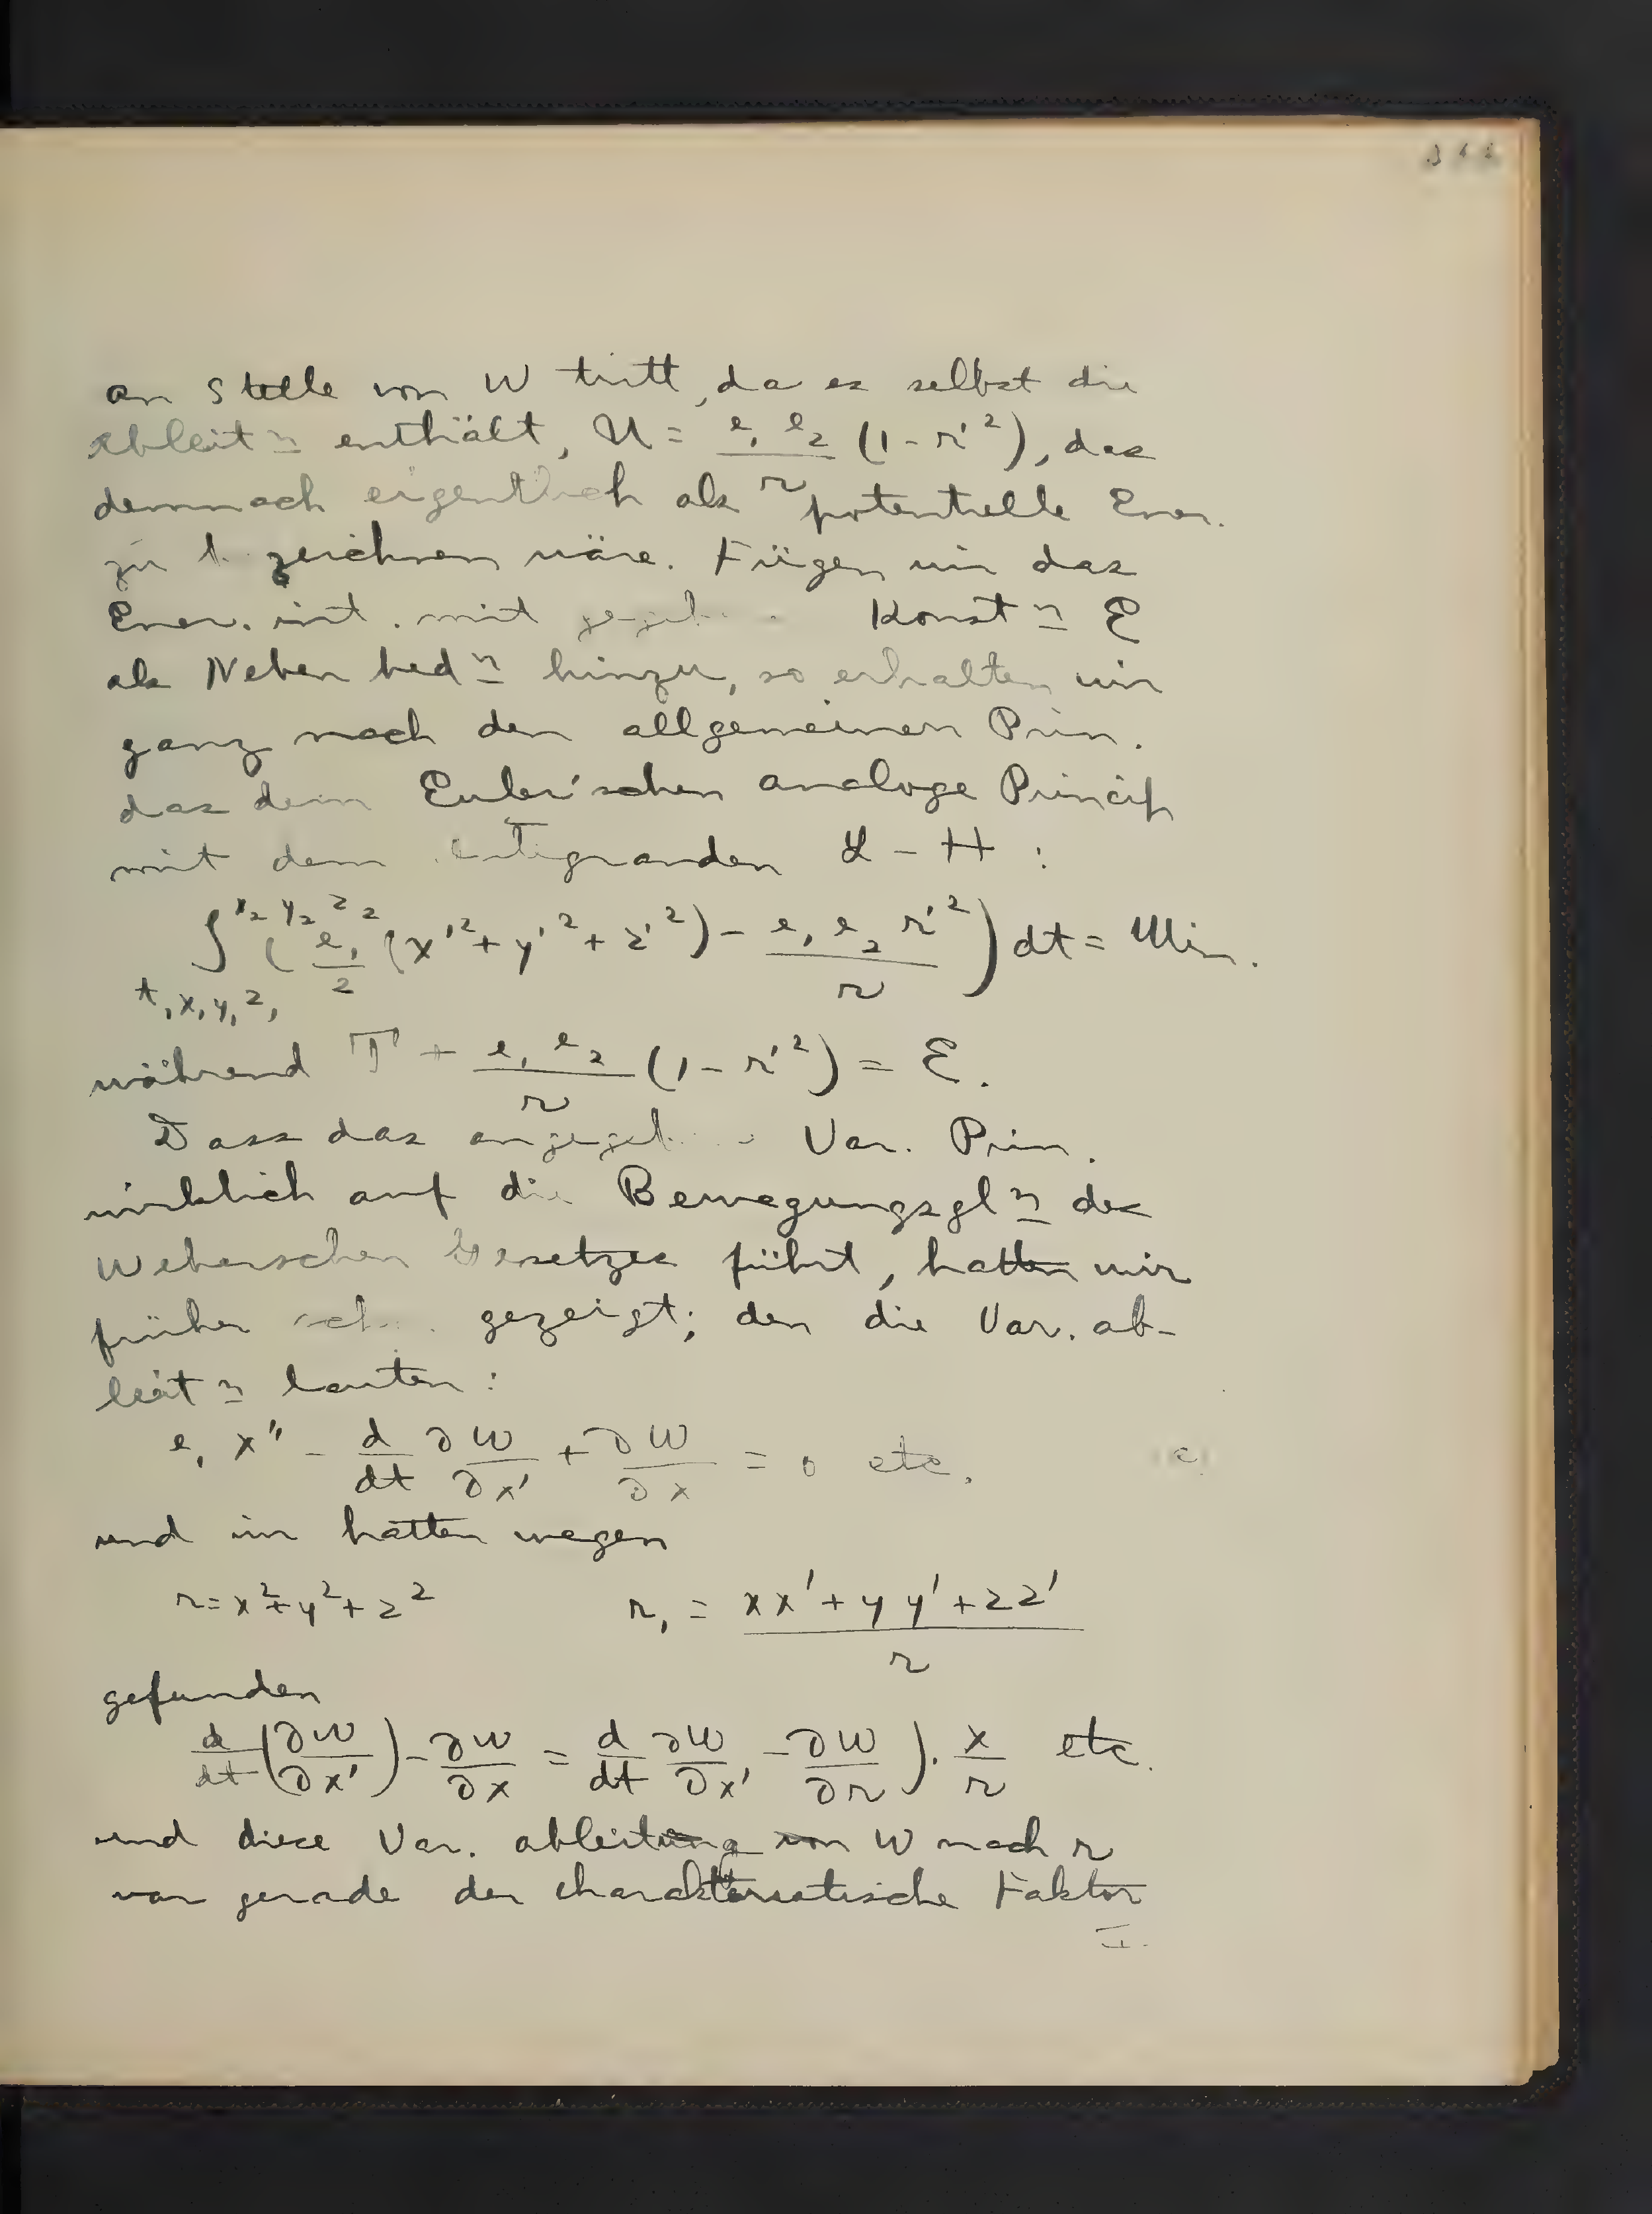 an Stelle von W tritt, da es selbst die
Ableit<u>n</u> enthält, U = e₁e₂/r (1 - r'²), das
demnach eigentlich als potentielle Ener.
zu zeichnen wäre. Fügen wir das
Ener. int. mit Konst<u>n</u> E
als Nebenbed<u>n</u> hinzu, so erhalten wir
ganz nach den allgemeinen Prin.
das dem Euler'schen analoge Princip
mit dem Integranden L - H :
∫_{t₁x₁y₁z₁}^{x₂y₂z₂} (e₁/2 (x'² + y'² + z'²) - e₁e₂r'²/r) dt = Min.
während T + e₁e₂/r (1 - r'²) = E.
Dass das Var. Prin.
wirklich auf die Bewegungsgl<u>n</u> des
Weberschen Gesetzes führt, hatten wir
früher gezeigt; den die Var. ab-
leit<u>n</u> lauten :
e₁ x'' - d/dt ∂W/∂x' + ∂W/∂x = 0 etc.
und wir hatten wegen
r = x² + y² + z² r₁ = (xx' + yy' + zz')/r
gefunden
d/dt (∂W/∂x') - ∂W/∂x = d/dt ∂W/∂x' - ∂W/∂r) · x/r etc.
und diese Var. ableitung von W nach r
war gerade der charakteristische Faktor